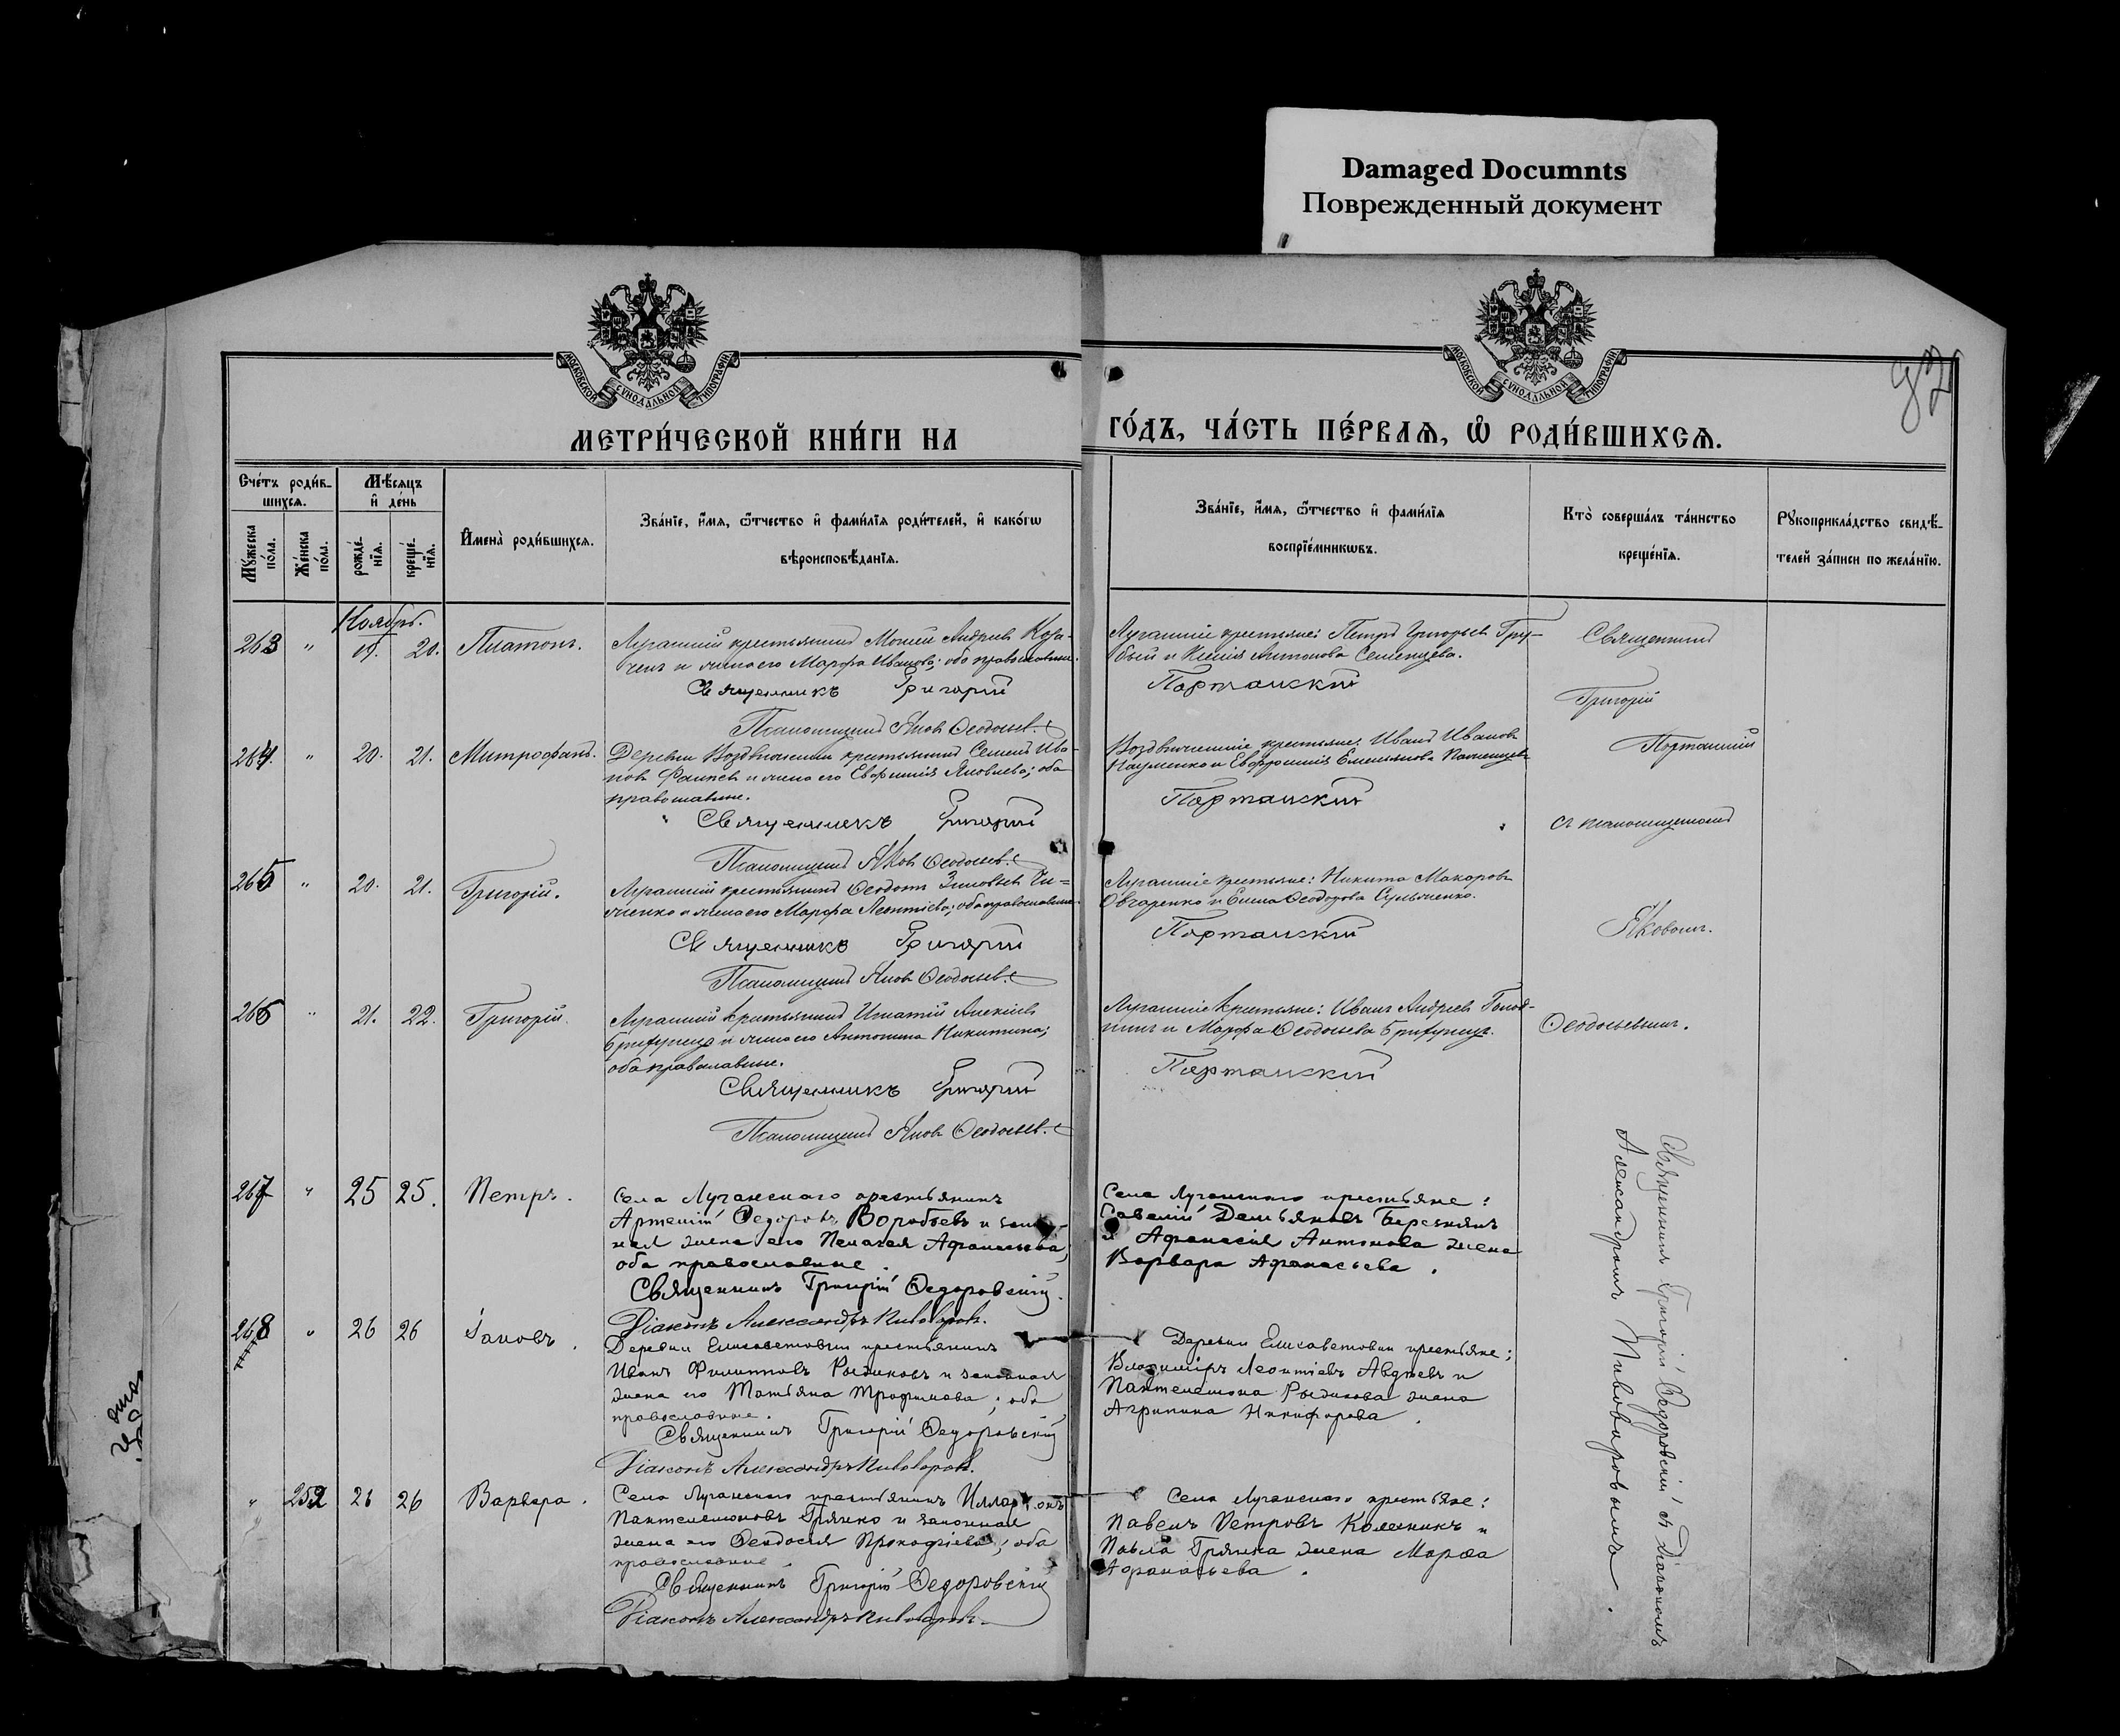 Damaged Documnts
Поврежденный документ
МОСКОВСКОЙ СѴНОДАЛЬНОЙ ТИПОГРАФІИ
МОСКОВСКОЙ СѴНОДАЛЬНОЙ ТИПОГРАФІИ
82
МЕТРИ́ЧЕСКОЙ КНИ́ГИ НА ГО́ДЪ, ЧА́СТЬ ПЕ́РВАЯ, Ѡ҆ РОДИ́ВШИХСЯ.
Сче́тъ роди́в-
шихся.
Мѣ́сяцъ
и҆ де́нь
Мꙋ́жеска по́ла.
Же́нска по́ла.
рожде́-нїя.
креще́-нїя.
И҆мена̀ роди́вшихся.
Зва́нїе, и҆́мя, ѻ҆́тчество и҆ фами́лїя роди́телей, и҆ како́гѡ
вѣроисповѣ́данїя.
Зва́нїе, и҆́мя, ѻ҆́тчество и҆ фами́лїя
воспрїе́мникѡвъ.
Кто̀ соверша́лъ та́инство
креще́нїя.
Рꙋкоприкла́дство свидѣ́-
телей за́писи по жела́нїю.
Ноябрь.
263 " 19. 20. Платонъ.
Луганскій крестьянинъ Моисей Андреевъ Коза-
ченъ и жена его Марфа Иванова; оба православные.
Священникъ Григорій Портанскій
Псаломщикъ Яковъ Ѳеодосьев.
Луганскіе крестьяне: Петръ Григорьевъ Гру-
бый и Ксенія Антонова Семенцева.
Священникъ
Григорій
Портанскій
съ псаломщикомъ
Яковомъ
Ѳеодосьевымъ.
264. " 20. 21. Митрофанъ.
Деревни Воздвиженки крестьянинъ Семенъ Ива-
новъ и жена его Евфимія Яковлева; оба
православные.
Священникъ Григорій Портанскій
Псаломщикъ Яковъ Ѳеодосьев.
Воздвиженскіе крестьяне: Иванъ Ивановъ
Науменко и Евфросинія Емельянова
265 " 20. 21. Григорій.
Луганскій крестьянинъ Ѳеодотъ Зиновьевъ
и жена его Марфа Леонтіева; оба православные.
Священникъ Григорій Портанскій
Псаломщикъ Яковъ Ѳеодосьев.
Луганскіе крестьяне: Никита Макаровъ
Овчаренко и Елена Ѳеодорова
266 " 21. 22. Григорій.
Луганскій крестьянинъ Игнатій Алексіевъ
и жена его Антонина Никитина;
оба православные.
Священникъ Григорій Портанскій
Псаломщикъ Яковъ Ѳеодосьев.
Луганскіе крестьяне: Иванъ Андреевъ
и Марфа Ѳеодосьева
267 " 25 25. Петръ.
Села Луганскаго крестьянинъ
Артемій Ѳедоровъ Воробьевъ и закон-
ная жена его Пелагея Афанасьева;
оба православные.
Священникъ Григорій Ѳедоровскій.
Діаконъ Александръ Пивоваровъ.
Села Луганскаго крестьяне:
Савелій Демьяновъ
и Афанасія Антонова жена
Варвара Афанасьева.
Священникъ Григорій Ѳедоровскій съ Діакономъ
Александромъ Пивоваровымъ.
268 " 26 26 Іаковъ.
Деревни Елисаветовки крестьянинъ
Иванъ Филипповъ Рыдиковъ и законная
жена его Татьяна Трофимова; оба
православные.
Священникъ Григорій Ѳедоровскій
Діаконъ Александръ Пивоваровъ.
Деревни Елисаветовки крестьяне;
Владиміръ Леонтіевъ Авдѣевъ и
Пантелемона Рыдикова жена
Агрипина Никифорова.
" 252 26 26 Варвара.
Села Луганскаго крестьянинъ Илларіонъ
Пантелемоновъ Грянко и законная
жена его Ѳеодосія Прокофіева; оба
православные.
Священникъ Григорій Ѳедоровскій
Діаконъ Александръ Пивоваровъ.
Села Луганскаго крестьяне:
Павелъ Петровъ Колесникъ и
Павла Грянка жена Марѳа
Афанасьева.